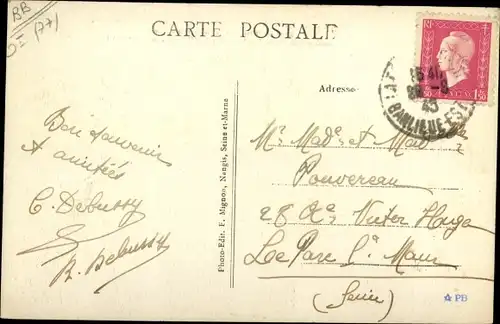 BB
(77)
CARTE POSTALE
RF
1F50
BANLIEUE-EST
45
Adresse
Bon souvenir
et amitiés
C. Debussy
R. Debussy
Photo-Edit. F. Mignon, Nangis, Seine-et-Marne
Mr Made et Mad
Pouvereau
28 Victor Hugo
Le Parc St Maur
(Seine)
☆ PB